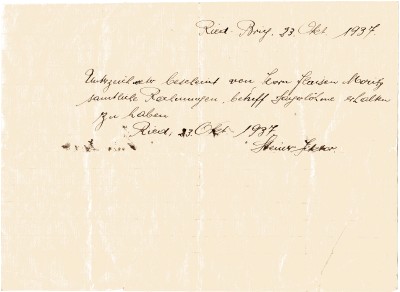 Ried-Brig, 23 Okt. 1937.
Unterzeichneter bescheint von Herrn Moritz
sämtliche Rechnungen, betreff Taglöhne erhalten
zu haben
Ried, 23. Okt. 1937.
Steiner